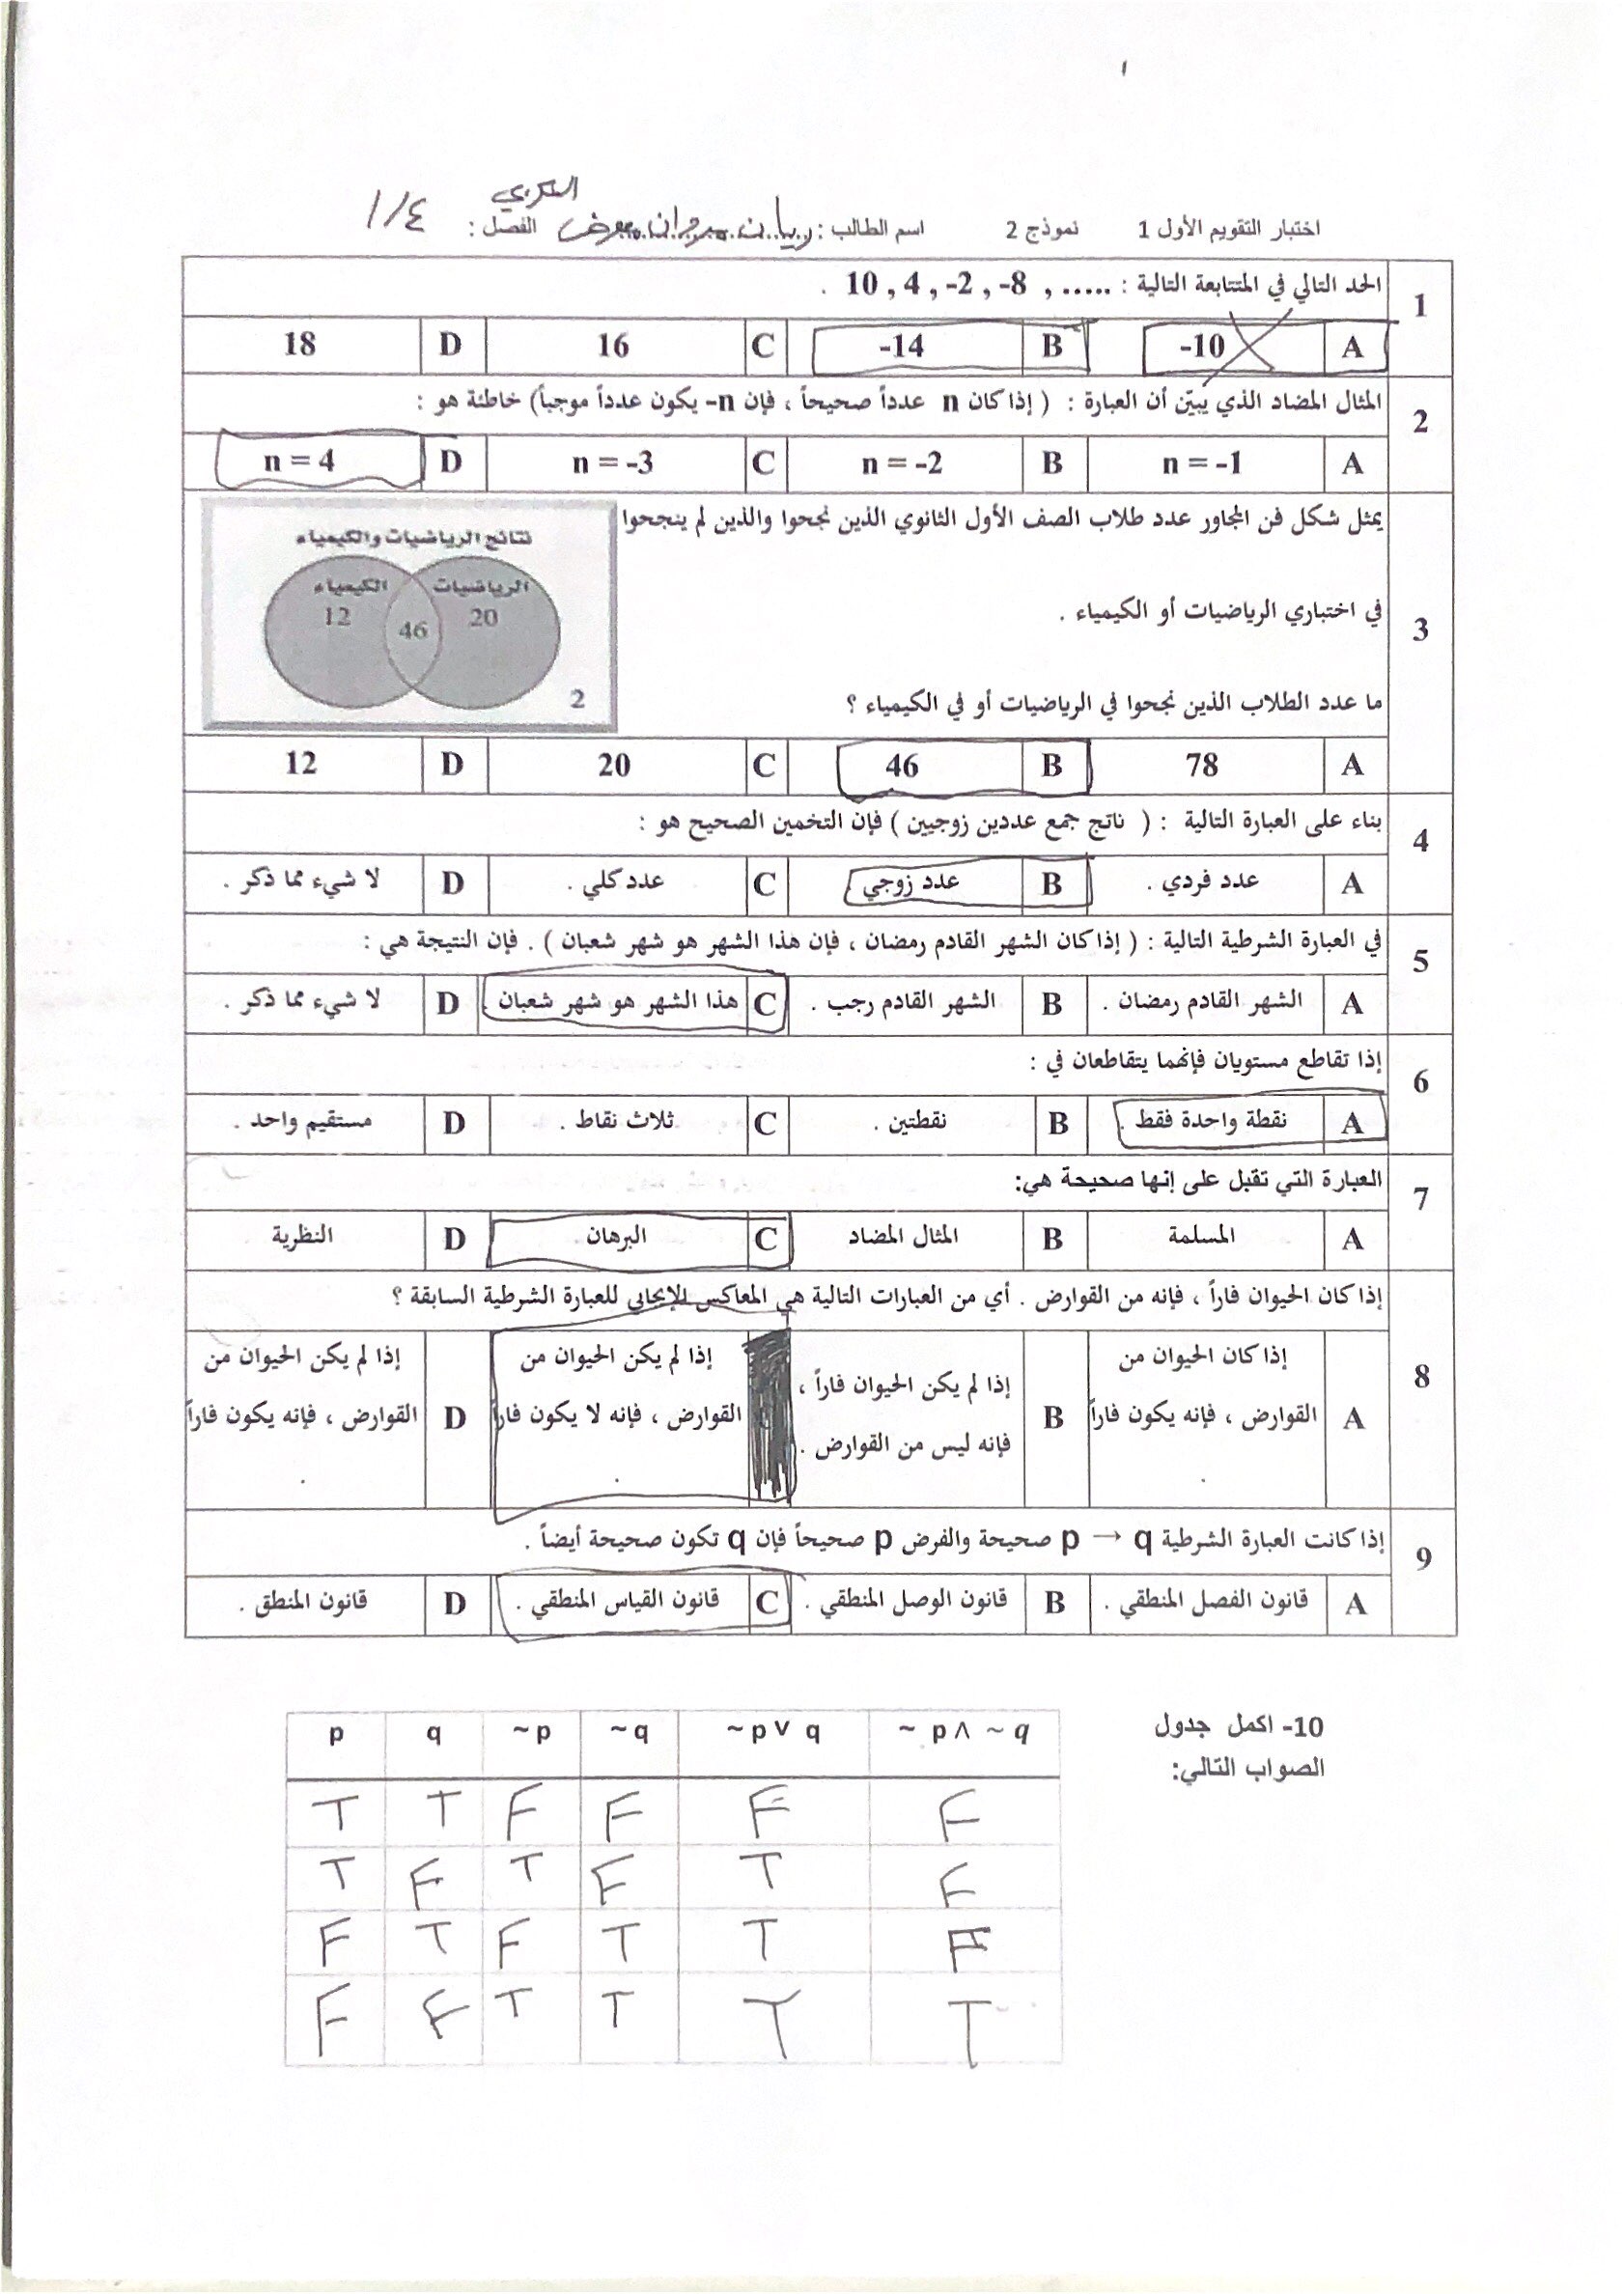 اختبار التقويم الأول 1 نموذج 2 اسم الطالب : ريان مروان معوض الفصل : ١/٤
1 الحد التالي في المتتابعة التالية : 10 , 4 , -2 , -8 , ..... .
A -10 B -14 C 16 D 18
2 المثال المضاد الذي يبيّن أن العبارة : ( إذا كان n عدداً صحيحاً ، فإن n- يكون عدداً موجباً) خاطئة هو :
A n = -1 B n = -2 C n = -3 D n = 4
3 يمثل شكل فن المجاور عدد طلاب الصف الأول الثانوي الذين نجحوا والذين لم ينجحوا
في اختباري الرياضيات أو الكيمياء .
ما عدد الطلاب الذين نجحوا في الرياضيات أو في الكيمياء ؟
نتائج الرياضيات والكيمياء
الرياضيات الكيمياء
20 46 12
2
A 78 B 46 C 20 D 12
4 بناء على العبارة التالية : ( ناتج جمع عددين زوجيين ) فإن التخمين الصحيح هو :
A عدد فردي . B عدد زوجي C عدد كلي . D لا شيء مما ذكر .
5 في العبارة الشرطية التالية : ( إذا كان الشهر القادم رمضان ، فإن هذا الشهر هو شهر شعبان ) . فإن النتيجة هي :
A الشهر القادم رمضان . B الشهر القادم رجب . C هذا الشهر هو شهر شعبان . D لا شيء مما ذكر .
6 إذا تقاطع مستويان فإنهما يتقاطعان في :
A نقطة واحدة فقط . B نقطتين . C ثلاث نقاط . D مستقيم واحد .
7 العبارة التي تقبل على إنها صحيحة هي:
A المسلمة B المثال المضاد C البرهان D النظرية
8 إذا كان الحيوان فاراً ، فإنه من القوارض . أي من العبارات التالية هي المعاكس الإيجابي للعبارة الشرطية السابقة ؟
A إذا كان الحيوان من
القوارض ، فإنه يكون فاراً
.
B إذا لم يكن الحيوان فاراً ،
فإنه ليس من القوارض .
إذا لم يكن الحيوان من
القوارض ، فإنه لا يكون فاراً
.
D إذا لم يكن الحيوان من
القوارض ، فإنه يكون فاراً
.
9 إذا كانت العبارة الشرطية p → q صحيحة والفرض p صحيحاً فإن q تكون صحيحة أيضاً .
A قانون الفصل المنطقي . B قانون الوصل المنطقي . C قانون القياس المنطقي . D قانون المنطق .
10- اكمل جدول
الصواب التالي:
p q ~p ~q ~p ∨ q ~ p ∧ ~ q
T T F F F F
T F T F T F
F T F T T F
F F T T T T